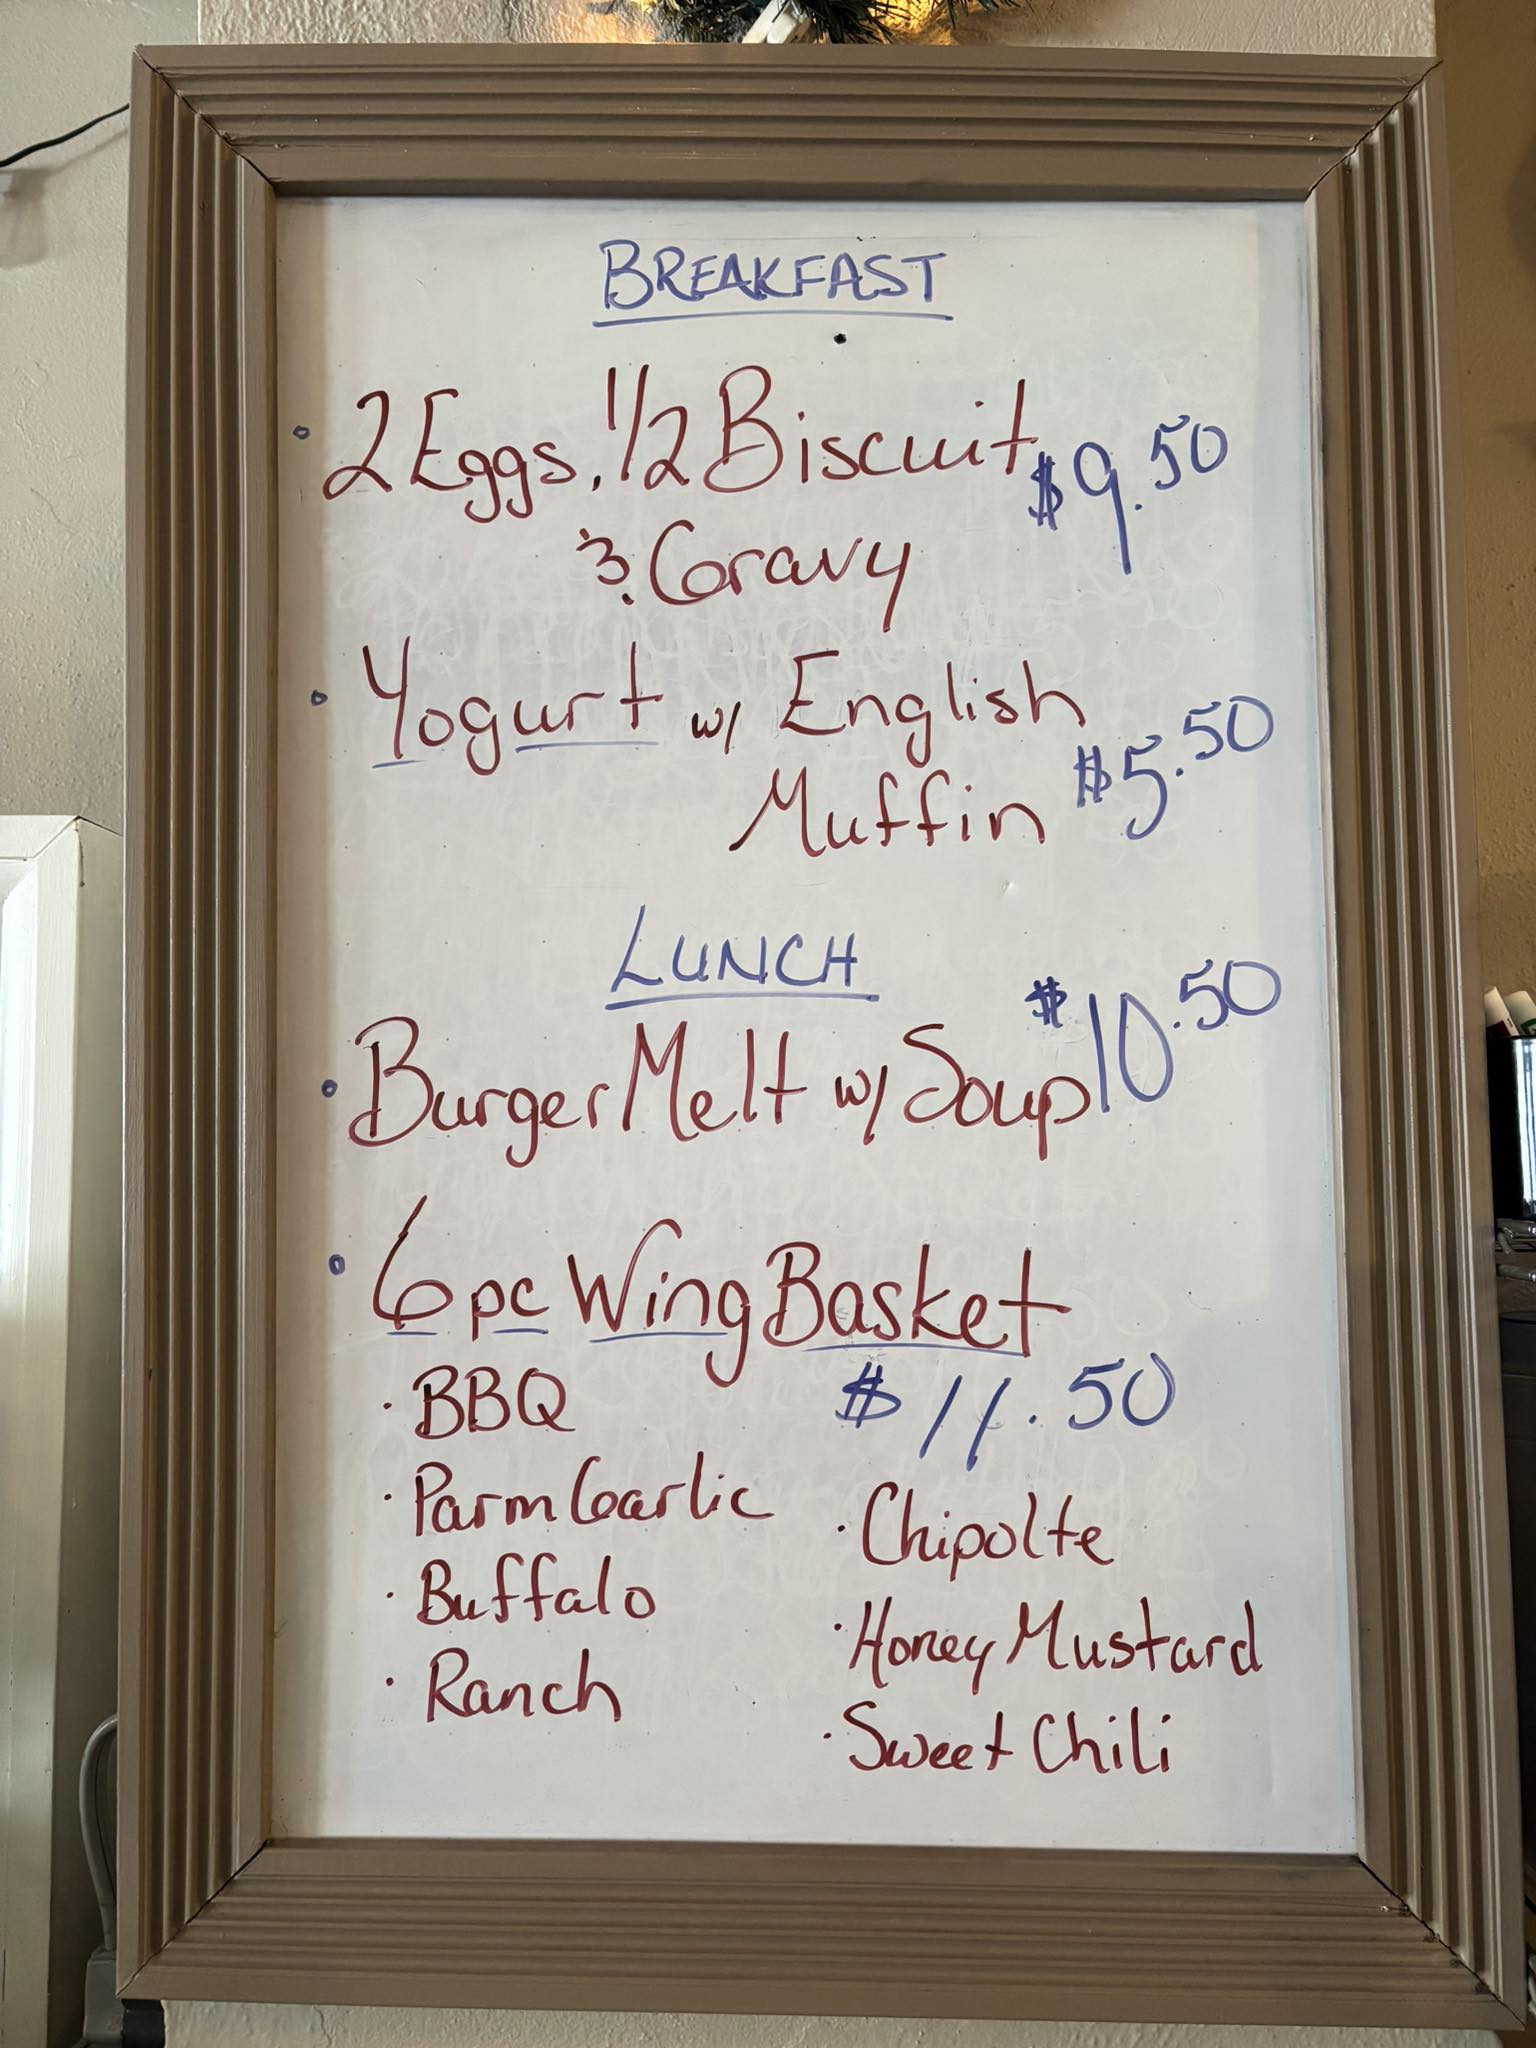 BREAKFAST
• 2 Eggs, 1/2 Biscuit $9.50
& Gravy
• Yogurt w/ English
Muffin $5.50
LUNCH
• Burger Melt w/ Soup $10.50
• 6 pc Wing Basket
$11.50
• BBQ
• Parm Garlic
• Buffalo
• Ranch
• Chipolte
• Honey Mustard
• Sweet Chili